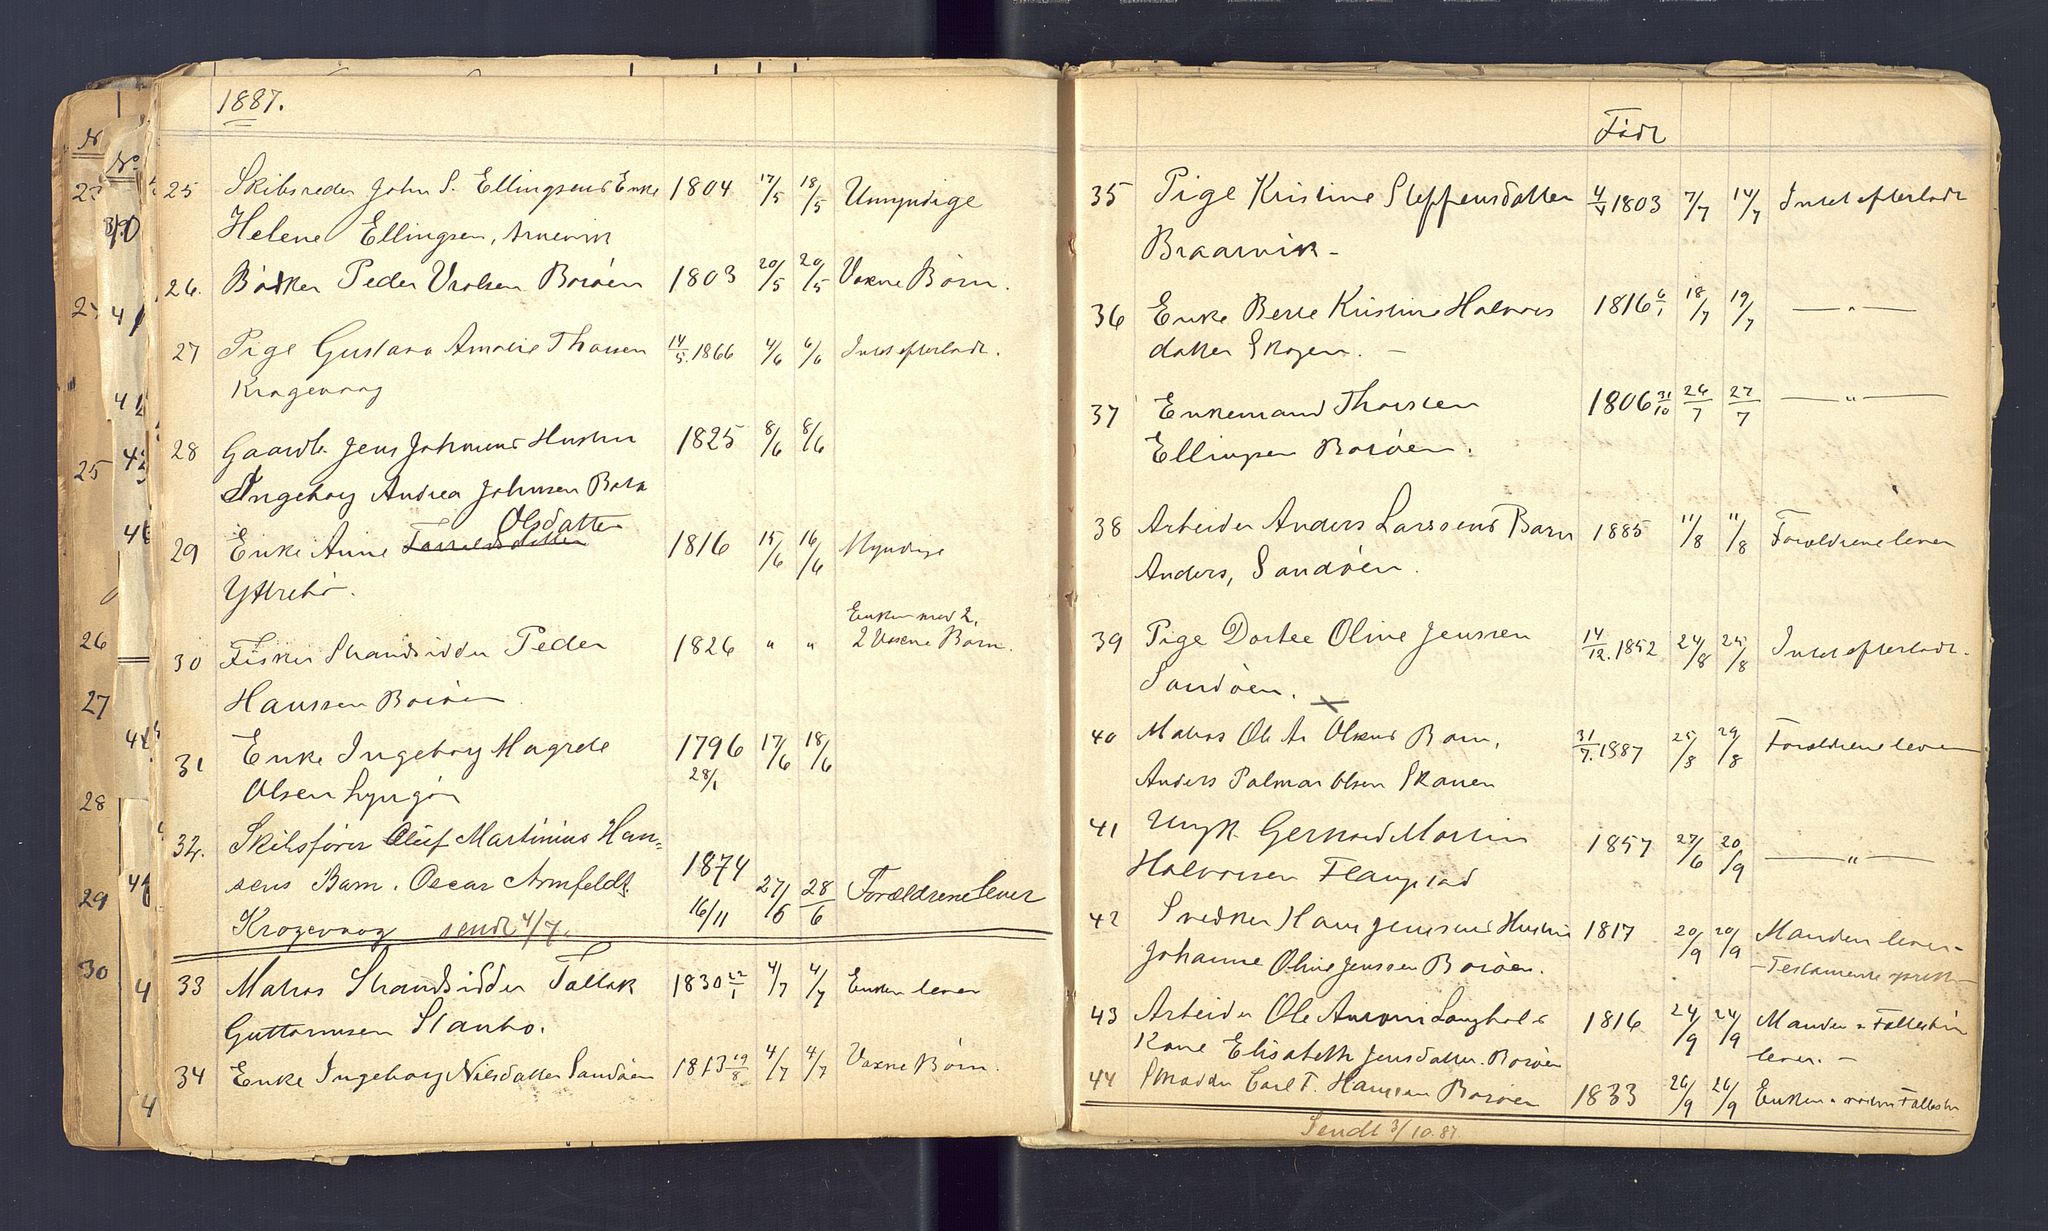 1887.
25 Skibsreder John S. Ellingsens Enke 1804 17/5 18/5 Umyndige
Helene Ellingsen, Arnevik
26. Bødker Peder Olsen Borøen 1803 20/5 20/5 Voxne Børn.
27 Pige Gustava Amalie Thorsen 14/5.1866 4/6 6/6 Intet efterladt.
Kragevaag
28 Gaardb. Jens Johnsens Hustru 1825 8/6 8/6
Ingeborg Andrea Johnsen Bota
Olsdatter
29 Enke Anne 1816 15/6 16/6 Myndige
Yttrebø.
Enken med 2,
30 Fisker Strandsidder Peder 1826 " " 2 Voxne Børn.
Hanssen Borøen
31 Enke Ingeborg Magrete 1796 17/6 18/6
Olsen Lyngør 28/1
32. Skibsfører Oluf Martinius Han=
sens Barn. Oscar Armfeldt 1874 27/6 28/6 Forældrene lever
Kragevaag sendt 4/7. 16/11
33 Matros Strandsidder Tallak 1830 22/1 4/7 4/7 Enken lever
Guttormsen Stanbo.
34 Enke Ingeborg Nilsdatter Sandøen 1813 19/8 4/7 4/7 Voxne Børn.
Født
35 Pige Kristine Steffensdatter 4/4 1803 7/7 14/7 Intet efterladt
Braarvik -
36 Enke Berte Kristine Halvors 1816 6/1 18/7 19/7 — " —
datter Skogen. -
37 Enkemand Thorsten 1806 31/10 26/7 27/7 — " —
Ellingsen Borøen.
38 Arbeider Anders Larssens Barn 1885 11/8 11/8 Forældrene lever
Anders, Sandøen.
39 Pige Dortee Oline Jenssen 14/12.1852 24/8 25/8 Intet efterladt.
Sandøen. ×
40 Matros Ole A. Olsens Barn, 31/7.1887 25/8 29/8 Forældrene lever
Anders Palmar Olsen Skaven
41 Ungk. Gerhard Martin 1857 27/6 20/9 — " —
Halvorsen Flangstad
42 Snedker Hans Jensens Hustru 1817 20/9 20/9 Manden lever -
Johanne Oline Jenssen Borøen. - Testamente oprett -
43 Arbeider Ole Langholms 1816 24/9 24/9 Manden & Fællesbørn
Kone Elisabeth Jensdatter. Borøen lever. -
44 Carl T. Hanssen Borøen 1833 26/9 26/9 Enken
Sendt 3/10.87
N
No
23
25
25
26
27
28
29
30